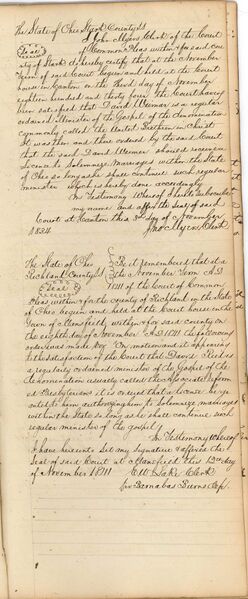 The State of Ohio Stark County SS
I John Myers Clerk of the Court
Seal
of Common Pleas within & for said coun
ty of Stark do hereby certify that at the November
Term of said Court begun and held at the Court
house in Canton on the Third day of November
eighteen hundred and thirty four The Court having
been satisfied that David Weimar is a regular
ordained Minister of the Gospel of the denomination
commonly called the United Brethren in Christ
It was then and there ordered by the said Court
that the said David Weimar should receive a
License to Solemnize Marriages within the State
of Ohio so long as he shall continue such regular
minister which is hereby done accordingly
In Testimony Whereof I hereunto subscribe
my name and affix the seal of said
Court at Canton this 3rd day of November
1834
Jno Myers Clerk
The State of Ohio
Richland County SS
Be it remembered that at
the November Term A.D.
Seal
1841 of the Court of Common
Pleas within & for the county of Richland in the State
of Ohio begun and held at the Court house in the
Town of Mansfield within & for said county on
the eighth day of November A.D. 1841 the following
order was made. On motion and it appearing
to the satisfaction of the Court that David
is
a regularly ordained minister of the Gospel of the
denomination usually called the Associate Reform
ed Presbyterians it is ordered that a license be gr
anted to him authorizing him to Solemnize marriages
within the State as long as he shall continue such
regular minister of the gospel
In Testimony Whereof
I have hereunto set my signature & affixed the
Seal of said Court at Mansfield this 12th day
of November 1841
Clerk
pr Barnabas Burns Dep.